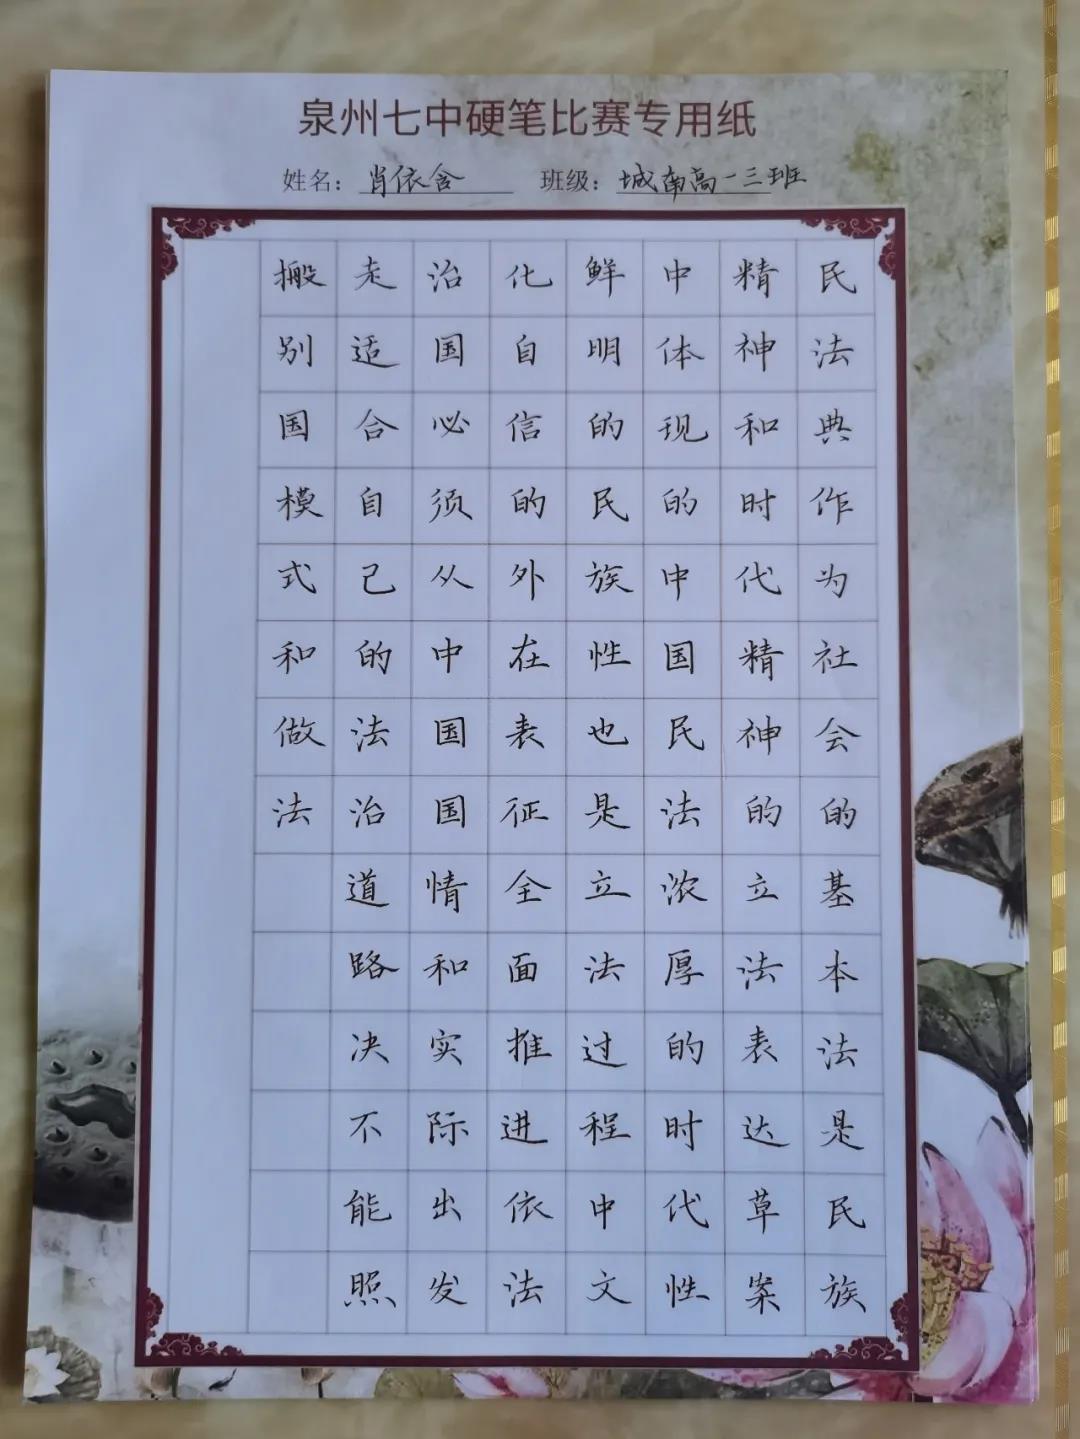 泉州七中硬笔比赛专用纸
姓名：肖依含 班级：城南高一三班
民法典作为社会的基本法是民族
精神和时代精神的立法表达草案
中体现的中国民法浓厚的时代性
鲜明的民族性也是立法过程中文
化自信的外在表征全面推进依法
治国必须从中国国情和实际出发
走适合自己的法治道路决不能照
搬别国模式和做法